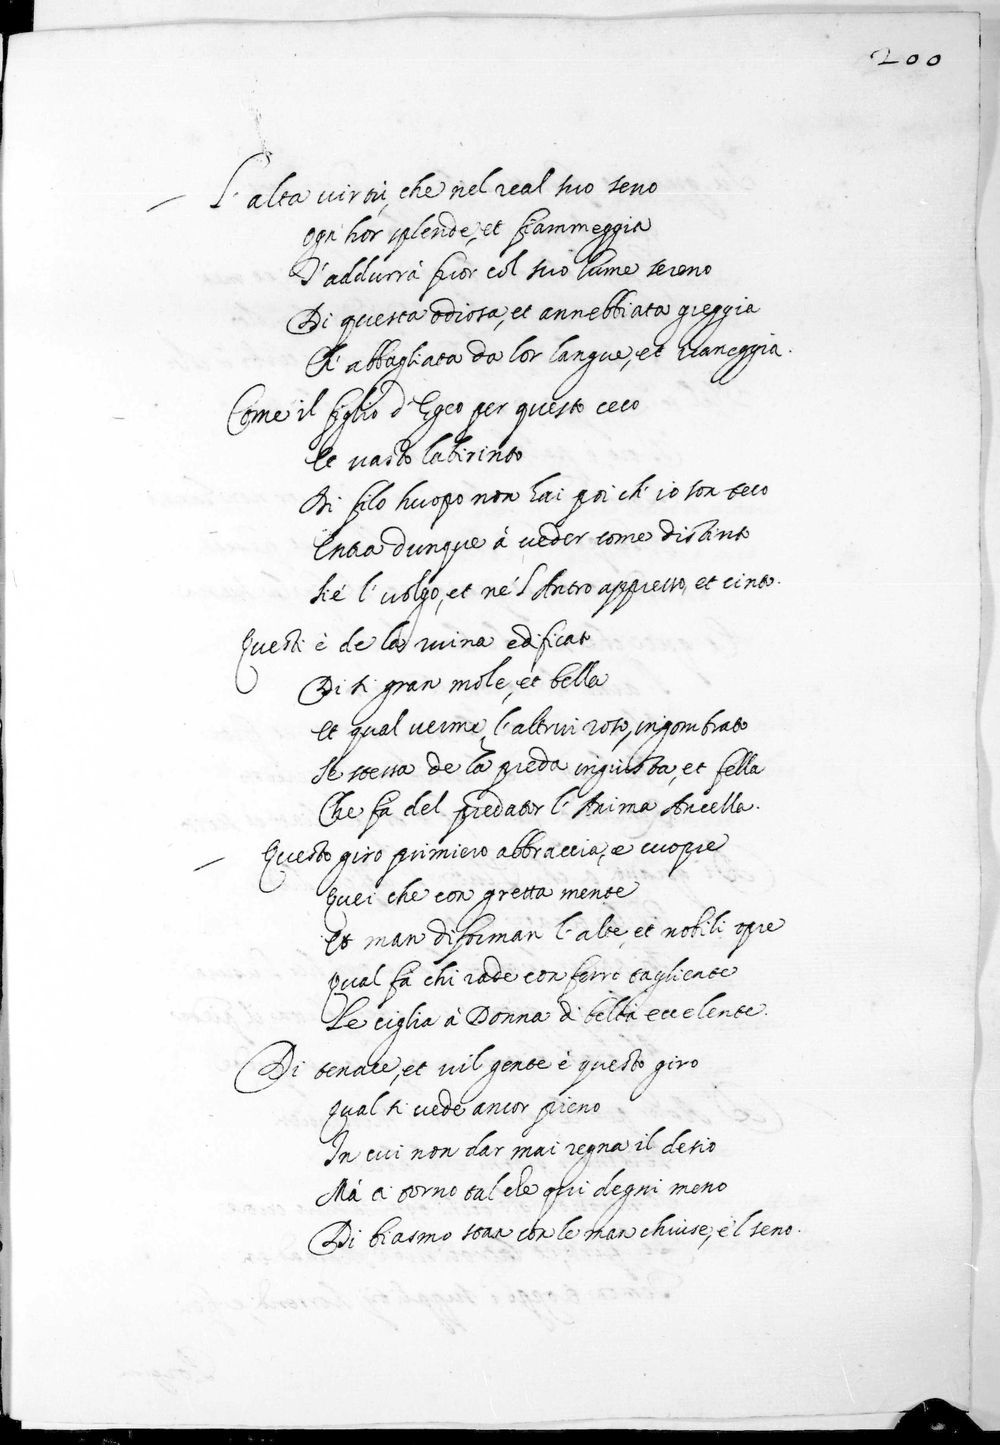 200
L'alta uirtù, che nel real suo seno
ogn'hor splende, et fiammeggia
T'addurrà fuor col suo lume sereno
Di questa odiosa, et annebbiata greggia
Ch'abbagliata da lor langue, et vaneggia.
Come il figlio d'Egeo per questo ceco
Et uasto labirinto
Di filo huopo non hai poi ch'io son teco
Entra dunque à ueder come distinto
Sié l'uolgo, et né l'Antro appresso, et cinto.
Questi è de la ruina edificato
Di sì gran mole, et bella
Et qual uerme, l'altrui roso, ingombrato
Se stessa de la preda ingiusta, et fella
Che fà del predator l'Anima Ancella.
Questo giro primiero abbraccia, e cuopre
Quei che con gretta mente
Et man disforman l'alte, et nobili opre
Qual fà chi rade con ferro tagliente
Le ciglia à Donna di beltà eccelente.
Di tenace, et uil gente è questo giro
Qual si uede ancor pieno
In cui non dar mai regna il desio
Mà ti torno tal che qui degni meno
Di biasmo stan con le man chiuse, e'l seno.